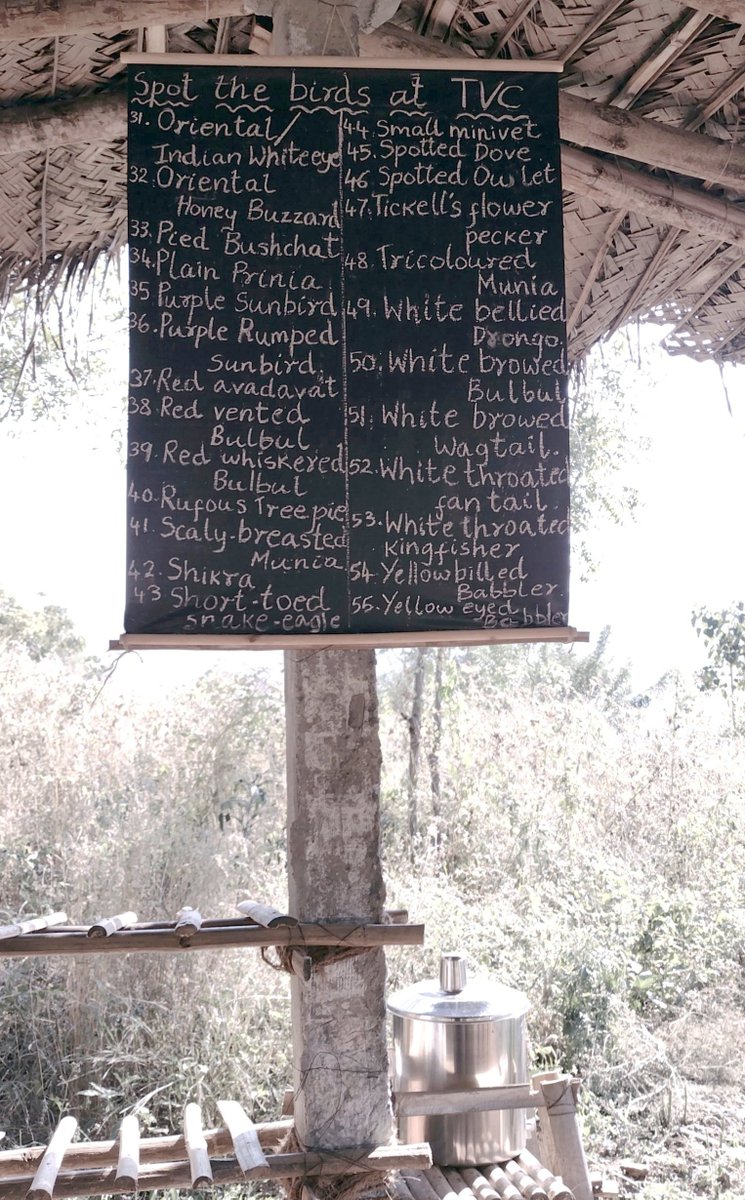 Spot the birds at TVC
31. Oriental/
Indian Whiteeye
32. Oriental
Honey Buzzard
33. Pied Bushchat
34. Plain Prinia
35 Purple Sunbird
36. Purple Rumped
Sunbird.
37. Red avadavat
38. Red vented
Bulbul
39. Red whiskered
Bulbul
40. Rufous Treepie
41. Scaly-breasted
Munia
42. Shikra
43 Short-toed
snake-eagle
44. Small minivet
45. Spotted Dove
46 Spotted Owlet
47. Tickell's flower
pecker
48 Tricoloured
Munia
49. White bellied
Drongo.
50. White browed
Bulbul
51. White browed
Wagtail.
52. White throated
fan tail.
53. White throated
Kingfisher
54. Yellow billed
Babbler.
55. Yellow eyed
Babbler